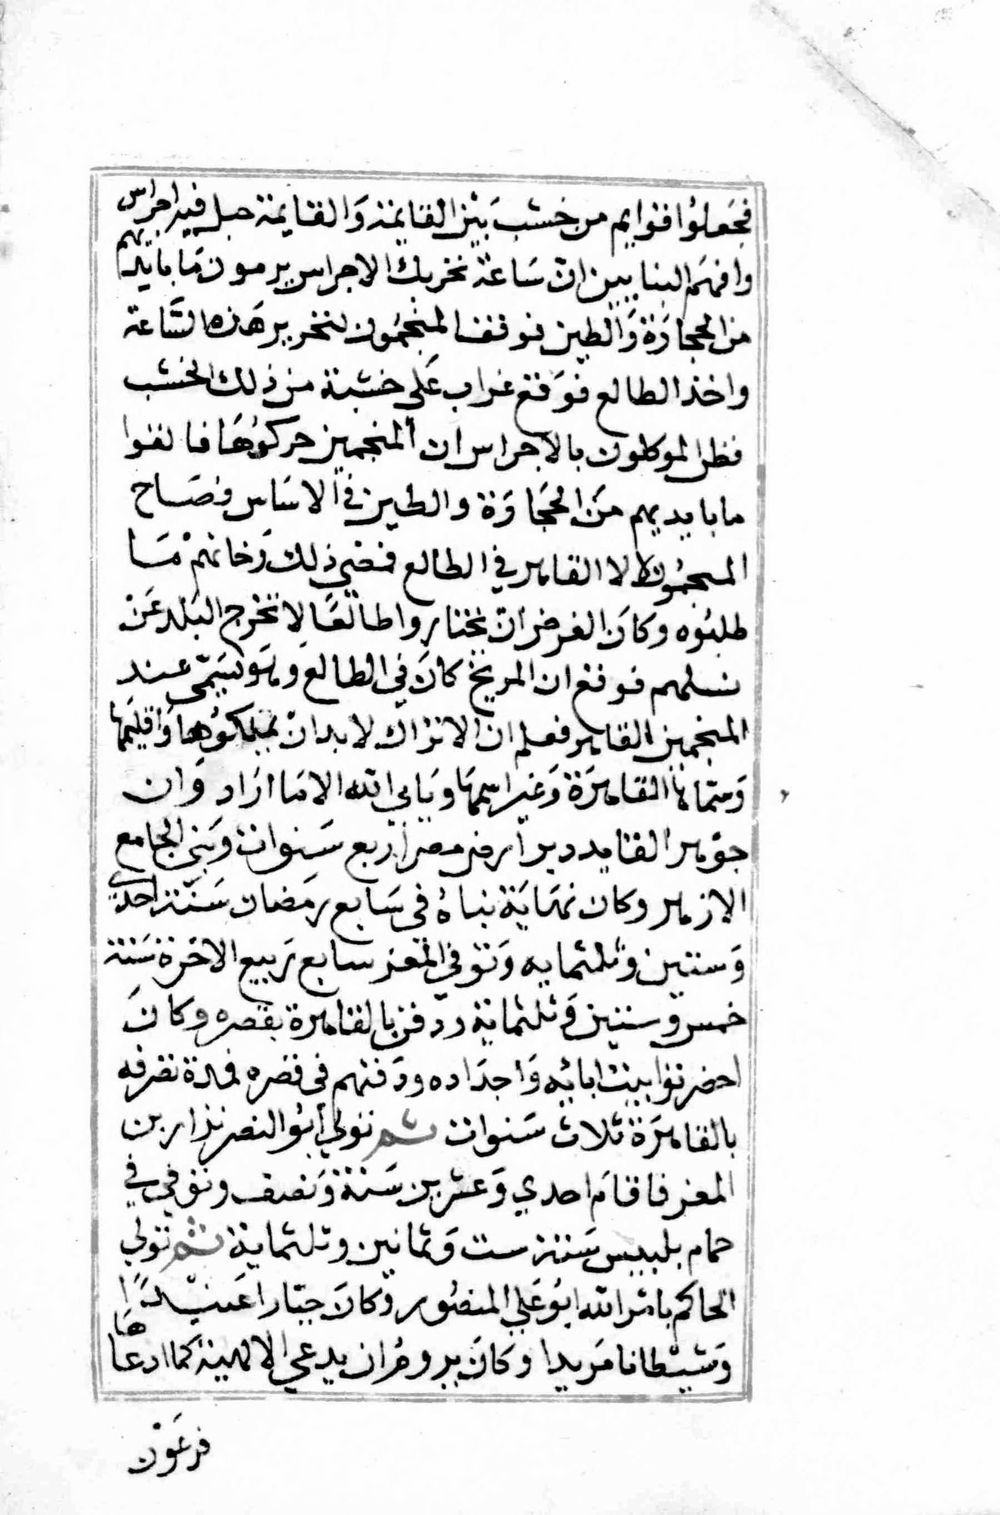 فجعلوا قوايم من خشب بين القايمة والقايمة حبل فيه اجراس
وافهموا البنايين ان ساعة تحريك الاجراس يرمون ما بايديهم
من الحجارة والطين فوقف المنجمون لتحرير هذه الساعة
واخذ الطالع فوقع غراب على خشبة من ذلك الخشب
فظن الموكلون بالاجراس ان المنجمين حركوها فالقوا
ما بايديهم من الحجارة والطين في الاساس فصاح
المنجمون لا لا القاهر في الطالع فمضي ذلك وخانهم ما
طلبوه وكان الغرض ان يختاروا طالعا لا تخرج البلد عن
نسلهم فوقع ان المريخ كان في الطالع وهو يسمى عند
المنجمين القاهر فعلم ان الاتراك لا بد ان يملكوها واقليمها
وسماها القاهرة وغير اسمها ويابى الله الا ما اراد وان
جوهر القايد دبر امر مصر اربع سنوات وبنى الجامع
الازهر وكان نهاية بناه في سابع رمضان سنة احدى
وستين وثلثمايه وتوفي المعز سابع ربيع الاخرة سنة
خمس وستين وثلثماية ودفن بالقاهرة بقصره وكان
احضر توابيت ابايه واجداده ودفنهم في قصره فمدة تصرفه
بالقاهرة ثلاث سنوات ثم تولي ابو النصر نزار بن
المعز فاقام احدي وعشرين سنة ونصف وتوفي في
حمام بلبيس سنة ست وثمانين وثلثماية ثم تولي
الحاكم بامر الله ابو علي المنصور وكان جبارا عنيدا
وشيطانا مريدا وكان يروم ان يدعي الالهية كما ادعاها
فرعون